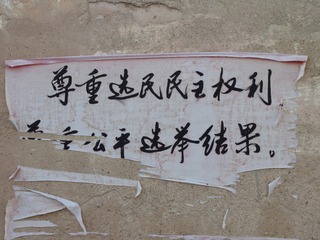 尊重选民民主权利
尊重公平选举结果。